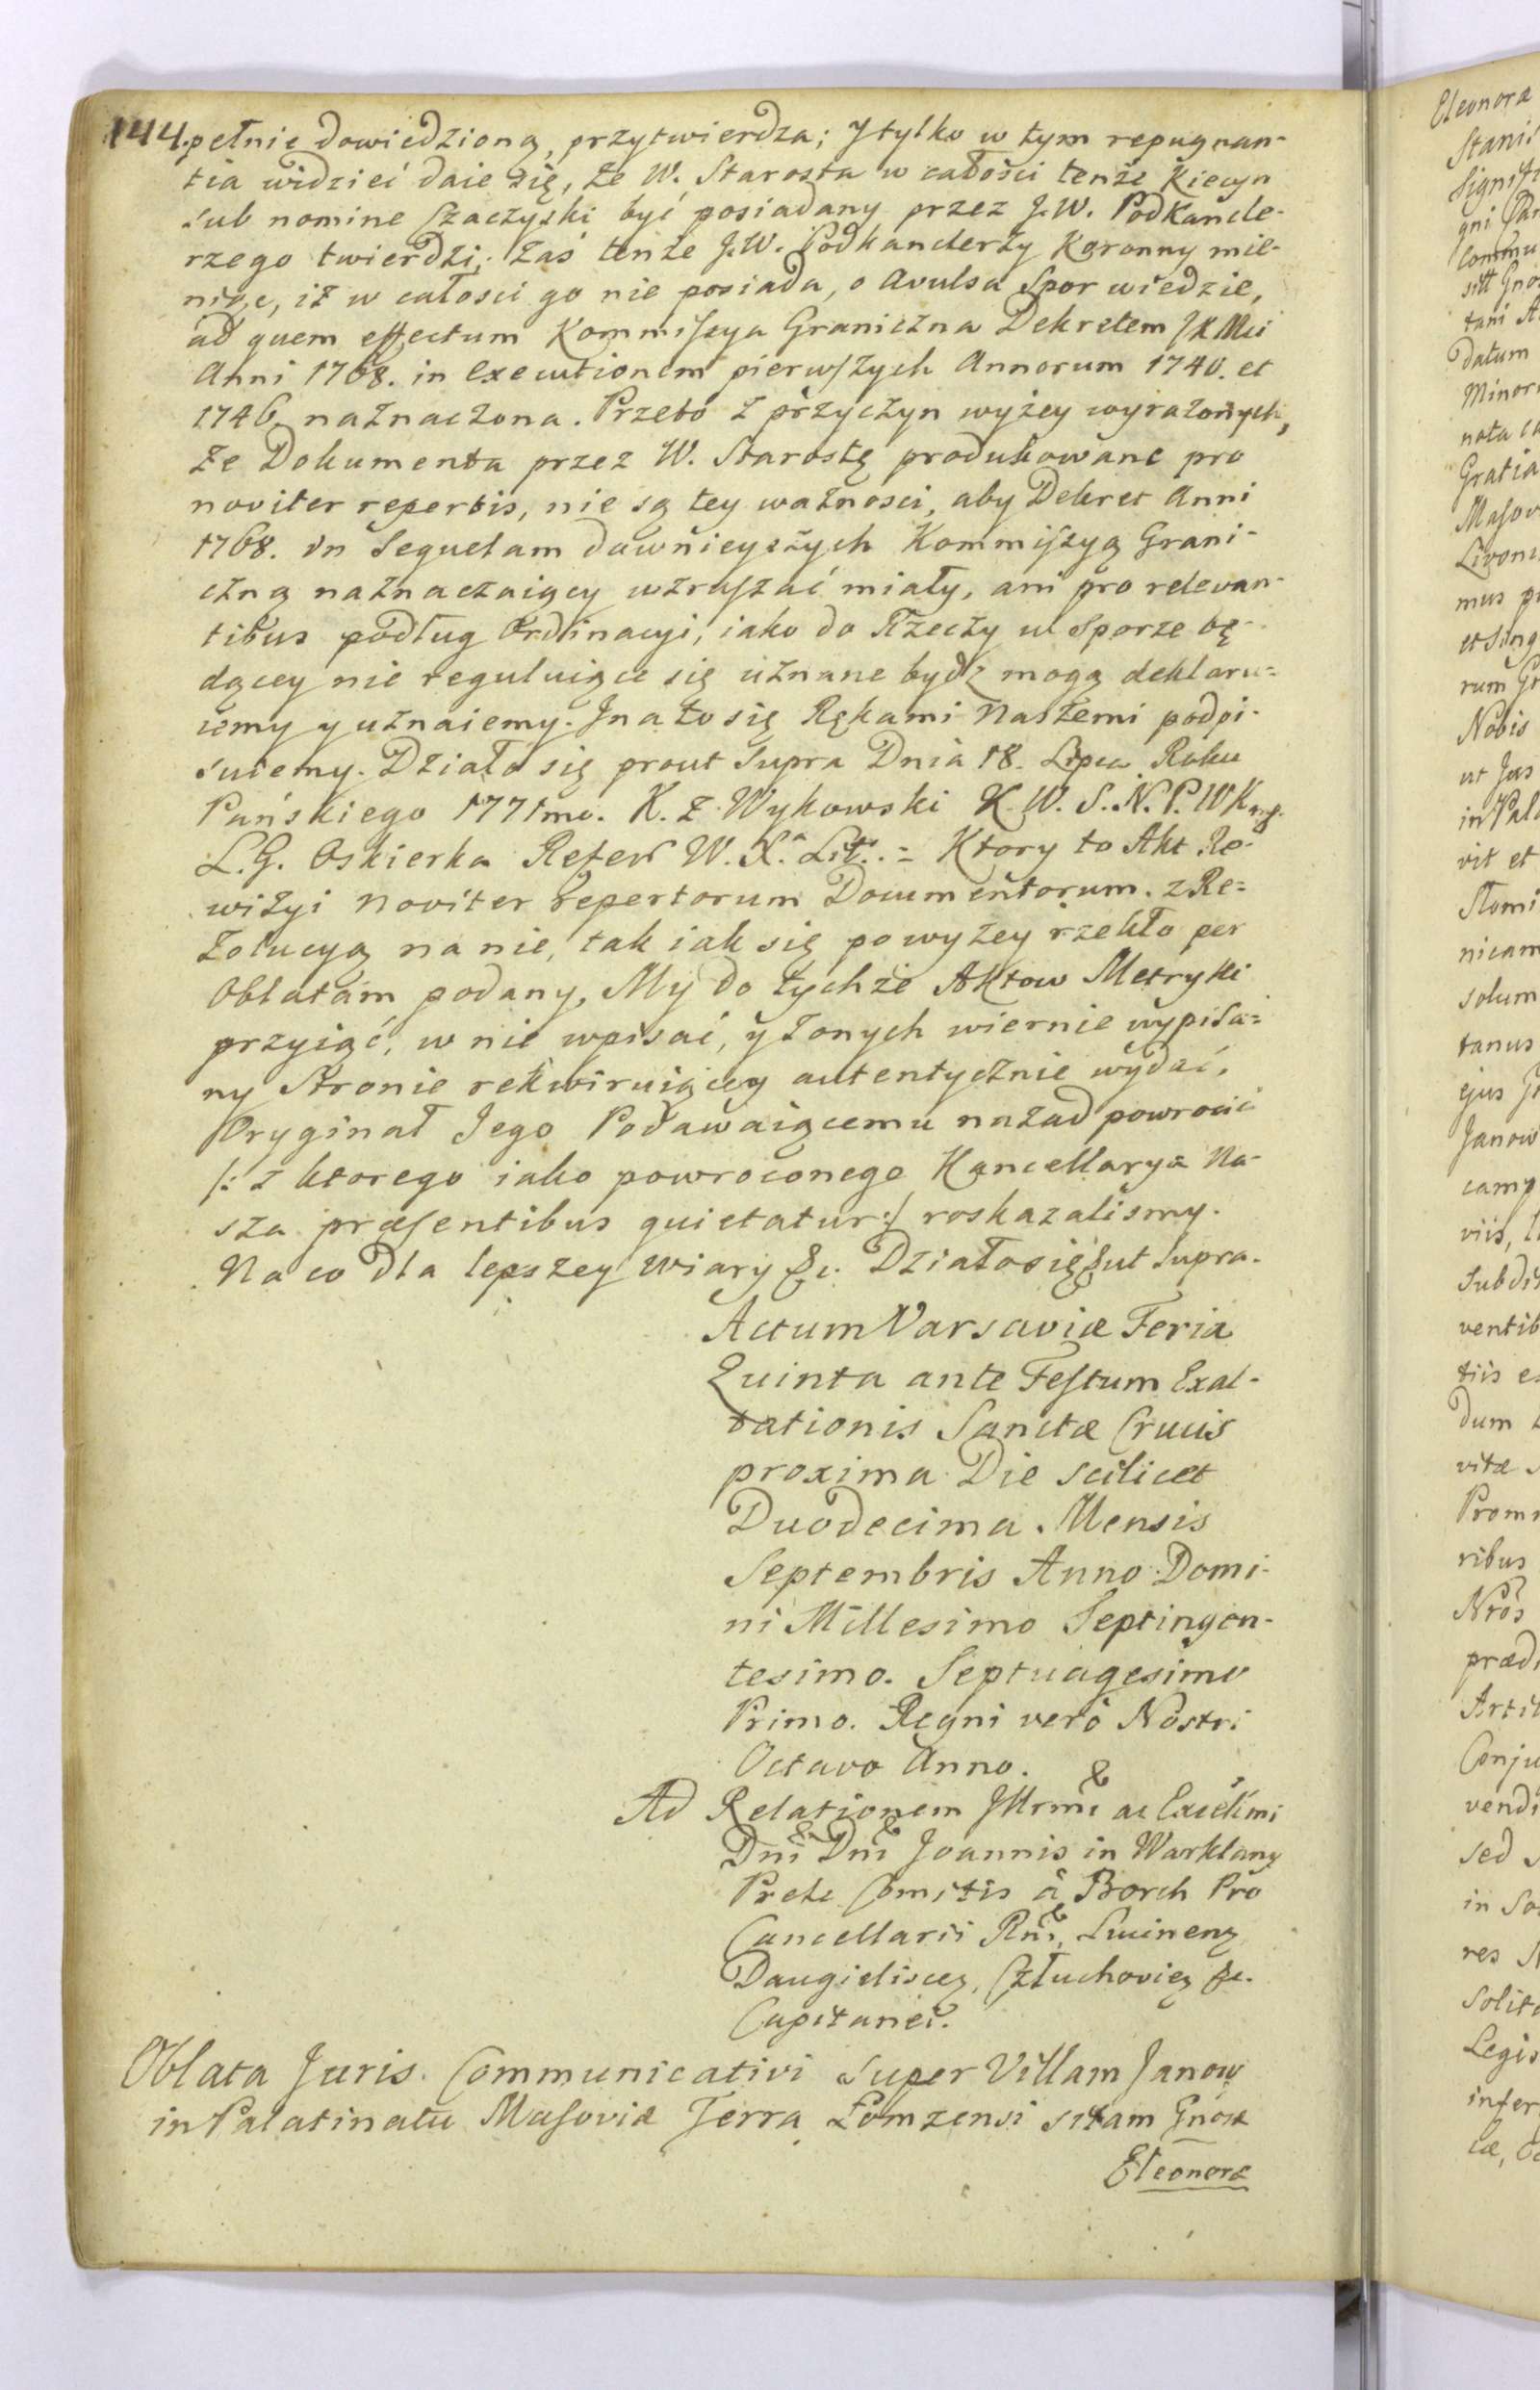 144. pełnie dowiedzioną, przytwierdza; Y tylko w tym repugnan-
tia widzieć daie się, że W. Starosta w całości tenże Kiecyn
sub nomine Szaczyski być posiadany przez J.W. Podkancle-
rzego twierdzi, zaś tenże J.W. Podkanclerzy Koronny mie-
niąc, iż w całosci go nie posiada, o Avulsa Spor wiedzie,
ad quem effectum Kommissya Graniczna Dekretem JKMci
Anni 1768. in executionem pierwszych Annorum 1740. et
1746. naznaczona. Przeto z przyczyn wyżey wyrażonych,
że Dokumenta przez W. Starostę produkowane pro
noviter repertis, nie są tey ważnosci, aby Dekret Anni
1768. in Sequelam dawnieyszych Kommissyą Grani-
czną naznaczaiący wzruszać miały, ani pro relevan-
tibus podług Ordinacyi, iako do Rzeczy w Sporze bę-
dącey nie reguluiące się uznane bydź mogą deklaru=
iemy y uznaiemy. J na to się Rękami Naszemi podpi-
suiemy. Działo się prout Supra Dnia 18. Lipca Roku
Pańskiego 1771mo. K. Z. Wykowski K. W. S. N. P. W K mp.
L. G. Oskierka Referr W. X.a Lit. = Ktory to Akt Re-
wizyi Noviter repertorum Documentorum. z Re=
zolucyą na nie, tak iak się powyżey rzekło per
Oblatam podany, My do tychże Aktow Metryki
przyiąć, w nie wpisać, y z onych wiernie wypisa=
ny Stronie rekwiruiącey autentycznie wydać,
Oryginał Jego Podawaiącemu nazad powrocić
/: z ktorego iako powroconego Kancellarya Na-
sza præsentibus quietatur :/ roskazalismy.
Na co dla lepszey wiary &c. Działo się ut Supra.
Actum Varsaviæ Feria
Quinta ante Festum Exal-
tationis Sanctæ Crucis
proxima Die scilicet
Duodecima. Mensis
Septembris Anno Domi-
ni Millesimo Septingen-
tesimo. Septuagesimo
Primo. Regni verò Nostri
Octavo Anno.
Ad Relationem Illrmi ac Excellmi
Dni Dni Joannis in Warklany
Prele Comitis à Borch Pro
Cancellarii Rni, Lucinenz
Daugieliscez, Człuchoviez &c.
Capitanei.
Oblata Juris Communicativi super Villam Janow
in Palatinatu Masoviæ Terra Łomzensi sitam Gnosæ
Eleonoræ
Eleonoræ
Stanis
datum
Minor
nota
Gratia
Masov
Livoni
mus
rum
Nobis
ut Jus
in Pala
vit et
nicam
solum
tanus
ejus
Janow
camp
viis,
subdi
ventib
tiis
dum
vitæ
Prom
ribus
Nros
præd
Conju
vendi
sed
in So
res
Solit
Legis
infer